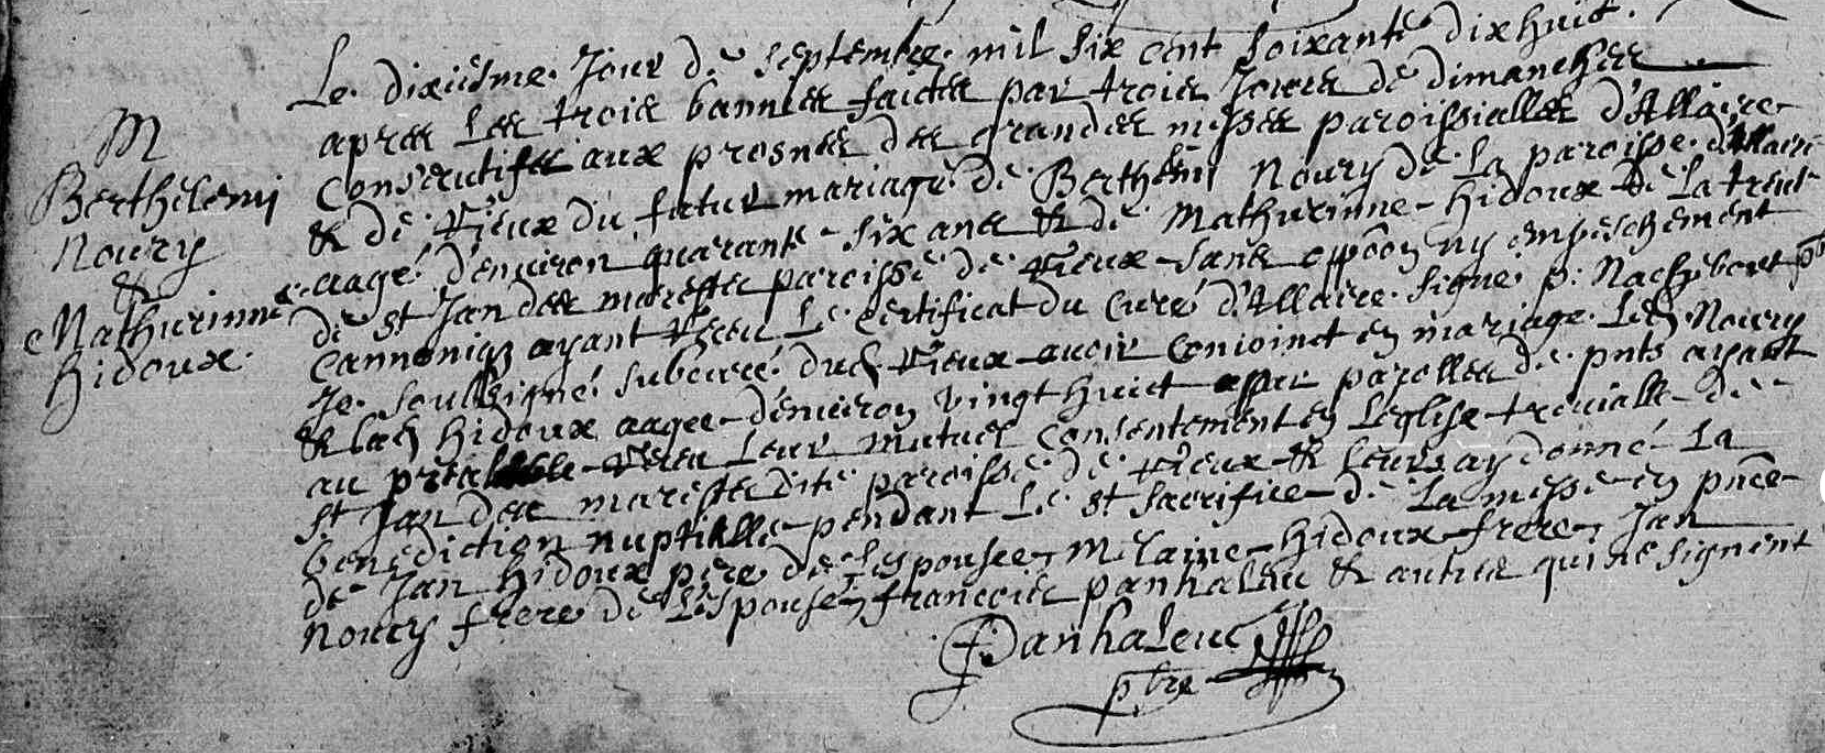 M
Berthelemi
Noury
&
Mathurinne
Hidoux.
Le dixiesme Jour de septembre mil six cent soixante dix huit.
apres les trois bannies faictes par trois Jours de dimanches
Consecutifs aux prosnes des grandes messes paroissialles d'Allaire
& de Rieux du futur mariage de Berthelmi Noury de la paroisse d'Allaire
aagé d'enuiron quarante six ans & de Mathurinne Hidoux de la treue
de st Jan des marestz paroisse de Rieux sans oppōon ny empeschement
Cannoniq ayant Receu le certificat du Curé d'Allaire signé p: Nachebout pbr
Je soussigné subcuré dud Rieux avoir Conioinct en mariage Led Noury
& lad Hidoux aagee d'enuiron vingt huict par parolles de pnts ayant
au prealable Receu leur mutuel Consentement en l'eglise treuialle de
st Jan des marestz dite paroisse de Rieux & leurs ay donné la
benediction nuptialle pendant le st sacrifice de la messe en pnce
de Jan Hidoux pere de l'espousee, Hidoux frere, Jan
Noury frere de l'espouse, francois panhaleu & autres qui ne signent
Panhaleuc
ptre